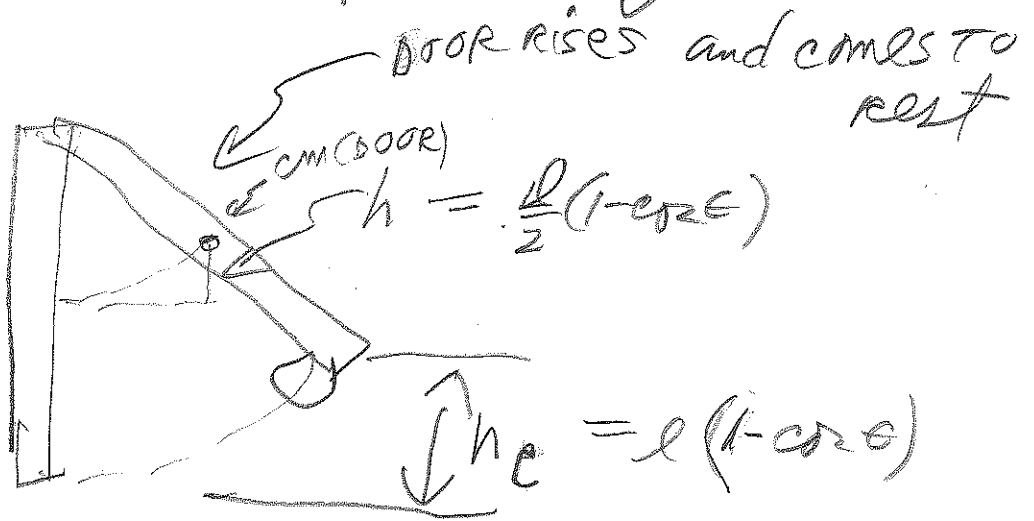 DOOR RISES and comes TO
rest
CM (DOOR)
h = ℓ/2 (1-cos θ)
he = ℓ (1-cos θ)